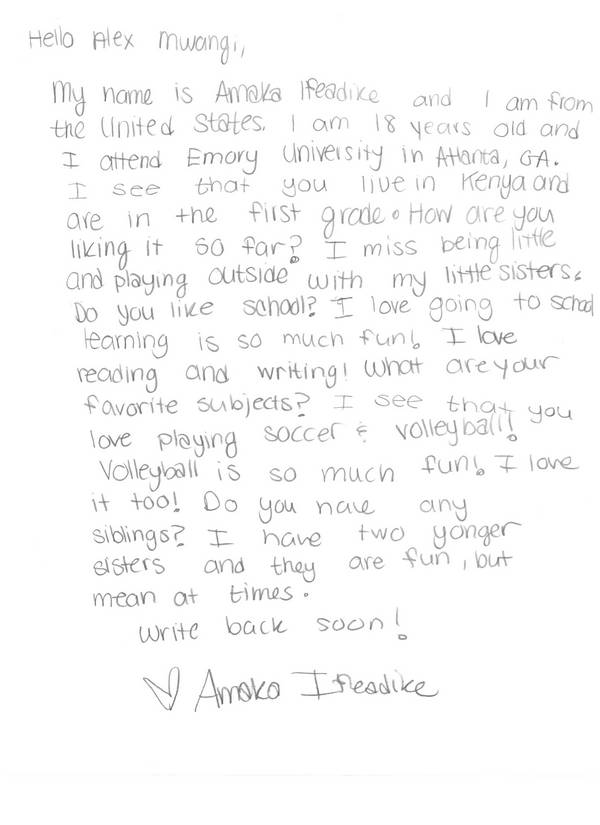 Hello Alex Mwangi,
My name is Amaka Ifeadike and I am from
the United States. I am 18 years old and
I attend Emory University in Atlanta, GA.
I see that you live in Kenya and
are in the first grade. How are you
liking it so far? I miss being little
and playing outside with my little sisters.
Do you like school? I love going to school
learning is so much fun! I love
reading and writing! What are your
favorite subjects? I see that you
love playing soccer & volleyball!
Volleyball is so much fun! I love
it too! Do you have any
siblings? I have two yonger
sisters and they are fun, but
mean at times.
Write back soon!
♡ Amaka Ifeadike